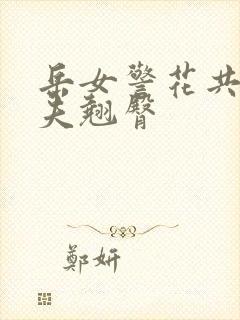 岳女警花共
夫翘臀
郑妍